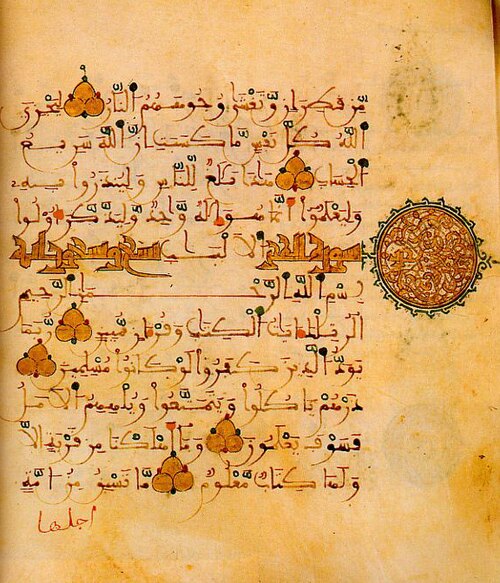 من قطران وتغشى وجوههم النار ليجزي
الله كل نفس ما كسبت ان الله سريع
الحساب هذا بلغ للناس ولينذروا به
وليعلموا انما هو اله واحد وليذكر اولوا
سورة الحجر الالباب تسع وتسعون اية
بسم الله الرحمن الرحيم
الر تلك ايت الكتب وقران مبين ربما
يود الذين كفروا لو كانوا مسلمين
ذرهم ياكلوا ويتمتعوا ويلههم الامل
فسوف يعلمون وما اهلكنا من قرية الا
ولها كتاب معلوم ما تسبق من امة
اجلها